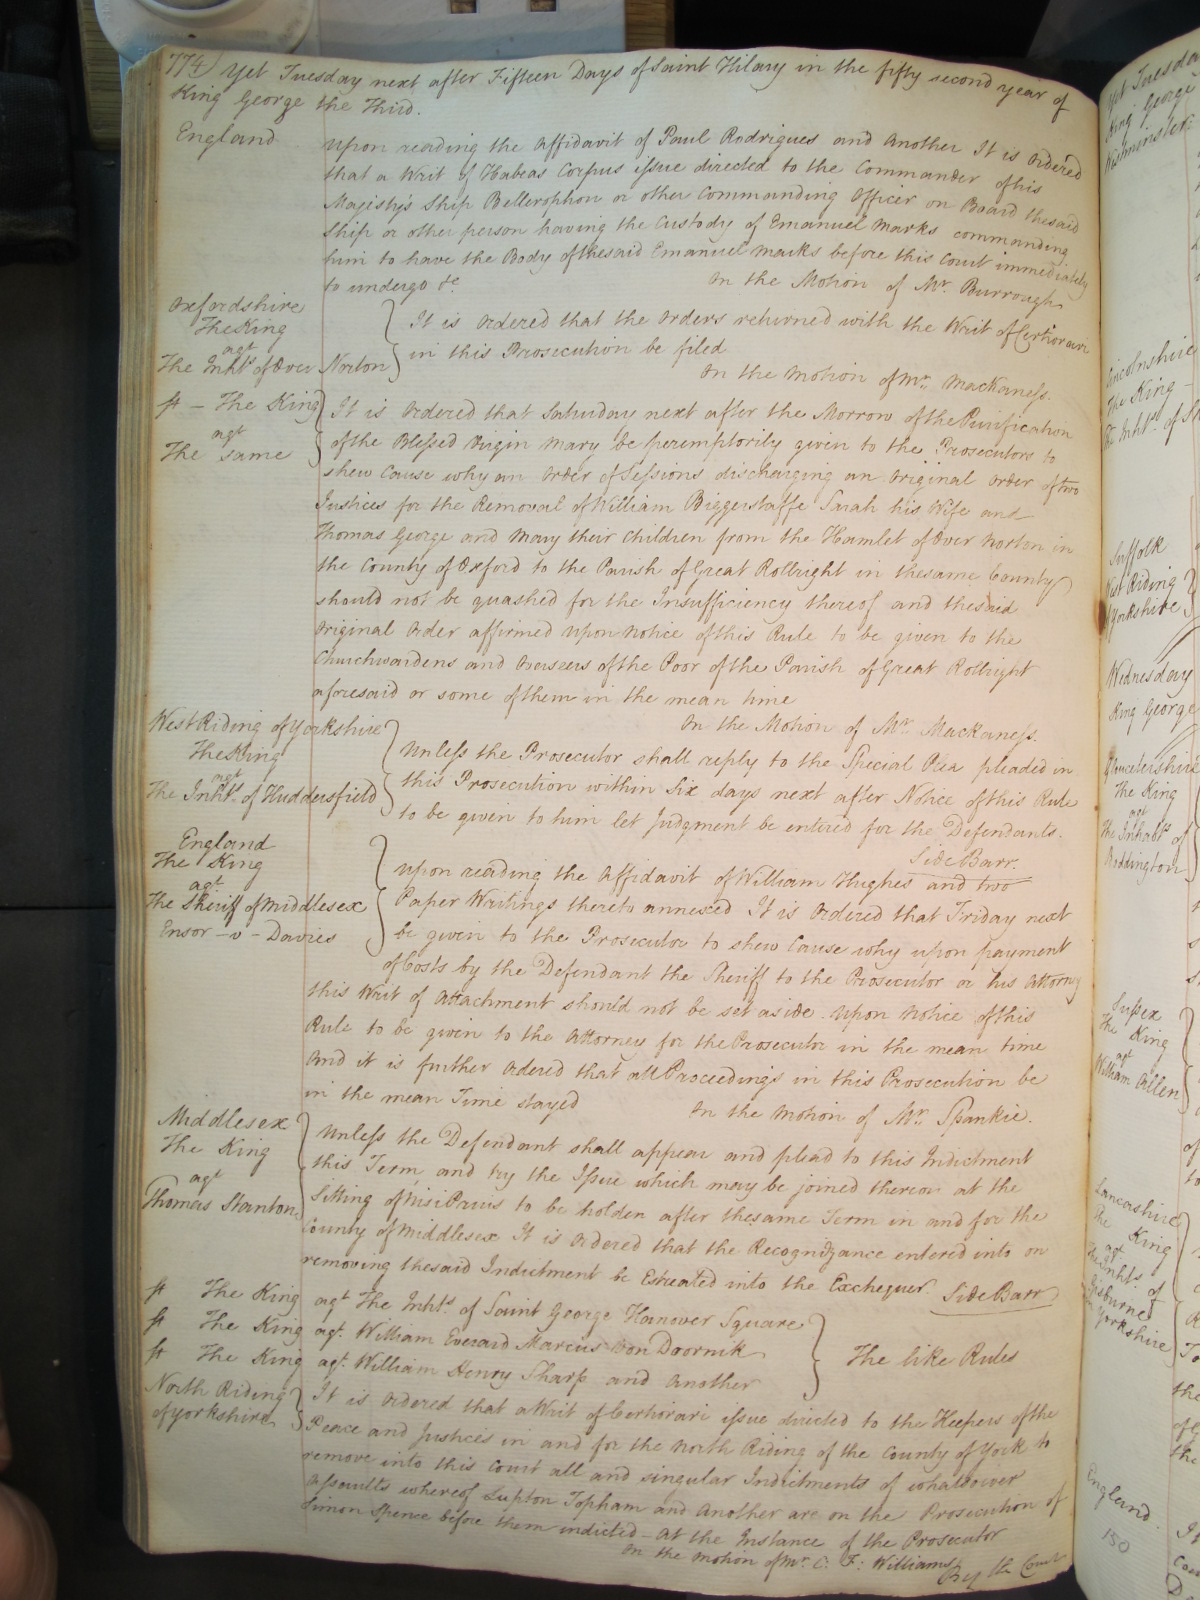 774) Yet Tuesday next after Fifteen Days of Saint Hilary in the fifty second year of
King George the Third.
England
Upon reading the Affidavit of Paul Rodrigues and Another It is Ordered
that a Writ of Habeas Corpus issue directed to the Commander of his
Majesty's Ship Bellerophon or other Commanding Officer on Board the said
Ship or other person having the Custody of Emanuel Marks commanding
him to have the Body of the said Emanuel Marks before this Court immediately
to undergo &c
On the Motion of Mr. Burrough
Oxfordshire
The King
agt
The Inhts of Over Norton
It is Ordered that the Orders returned with the Writ of Certiorari
in this Prosecution be filed
On the Motion of Mr. Mackaness.
st - The King
agt
The same
It is Ordered that Saturday next after the Morrow of the Purification
of the Blessed Virgin Mary be peremptorily given to the Prosecutors to
shew Cause why an Order of Sessions discharging an Original Order of two
Justices for the Removal of William Biggerstaffe Sarah his Wife and
Thomas George and Mary their Children from the Hamlet of Over Norton in
the County of Oxford to the Parish of Great Rollright in the same County
should not be quashed for the Insufficiency thereof and the said
Original Order affirmed upon Notice of this Rule to be given to the
Churchwardens and Overseers of the Poor of the Parish of Great Rollright
aforesaid or some of them in the mean time
On the Motion of Mr. Mackaness.
West Riding of Yorkshire
The King
agt
The Inhts. of Huddersfield
Unless the Prosecutor shall reply to the Special Plea pleaded in
this Prosecution within Six days next after Notice of this Rule
to be given to him let Judgment be entered for the Defendants.
Side Barr.
England
The King
agt.
The Sheriff of Middlesex
Ensor - v - Davies
Upon reading the Affidavit of William Hughes and two
Paper Writings thereto annexed It is Ordered that Friday next
be given to the Prosecutor to shew Cause why upon payment
of Costs by the Defendant the Sheriff to the Prosecutor or his Attorny
this Writ of Attachment should not be set aside. Upon Notice of this
Rule to be given to the Attorney for the Prosecutor in the mean time
And it is further Ordered that all Proceedings in this Prosecution be
in the mean Time stayed
On the Motion of Mr. Spankie.
Middlesex
The King
agt
Thomas Stanton
Unless the Defendant shall appear and plead to this Indictment
this Term, and try the Issue which may be joined thereon at the
Sitting of Nisi Prius to be holden after the same Term in and for the
County of Middlesex It is Ordered that the Recognizance entered into on
removing the said Indictment be Estreated into the Exchequer. Side Barr
st The King agt The Inhts. of Saint George Hanover Square
st The King agt. William Everard Marcus Von Doornik
st The King agt. William Henry Tharp and Another
The like Rules
North Riding
of Yorkshire
It is Ordered that a Writ of Certiorari issue directed to the Keepers of the
Peace and Justices in and for the North Riding of the County of York to
remove into this Court all and singular Indictments of whatsoever
Assaults whereof Lupton Topham and Another are on the Prosecution of
Simon Spence before them indicted - At the Instance of the Prosecutor
On the Motion of Mr. C: F: Williams
By the Court
Yet Tuesda
King George
Westminster
Lincolnshire
The King
The Inhts. of
Suffolk
West Riding
Yorkshire
Wednesday
King George
Gloucestershire
The King
agt
The Inhabts of
Sussex
The King
agt
William Allen
Lancashire
The King
agt
The Inhts. of
Gisburne
in Yorkshire
England
150